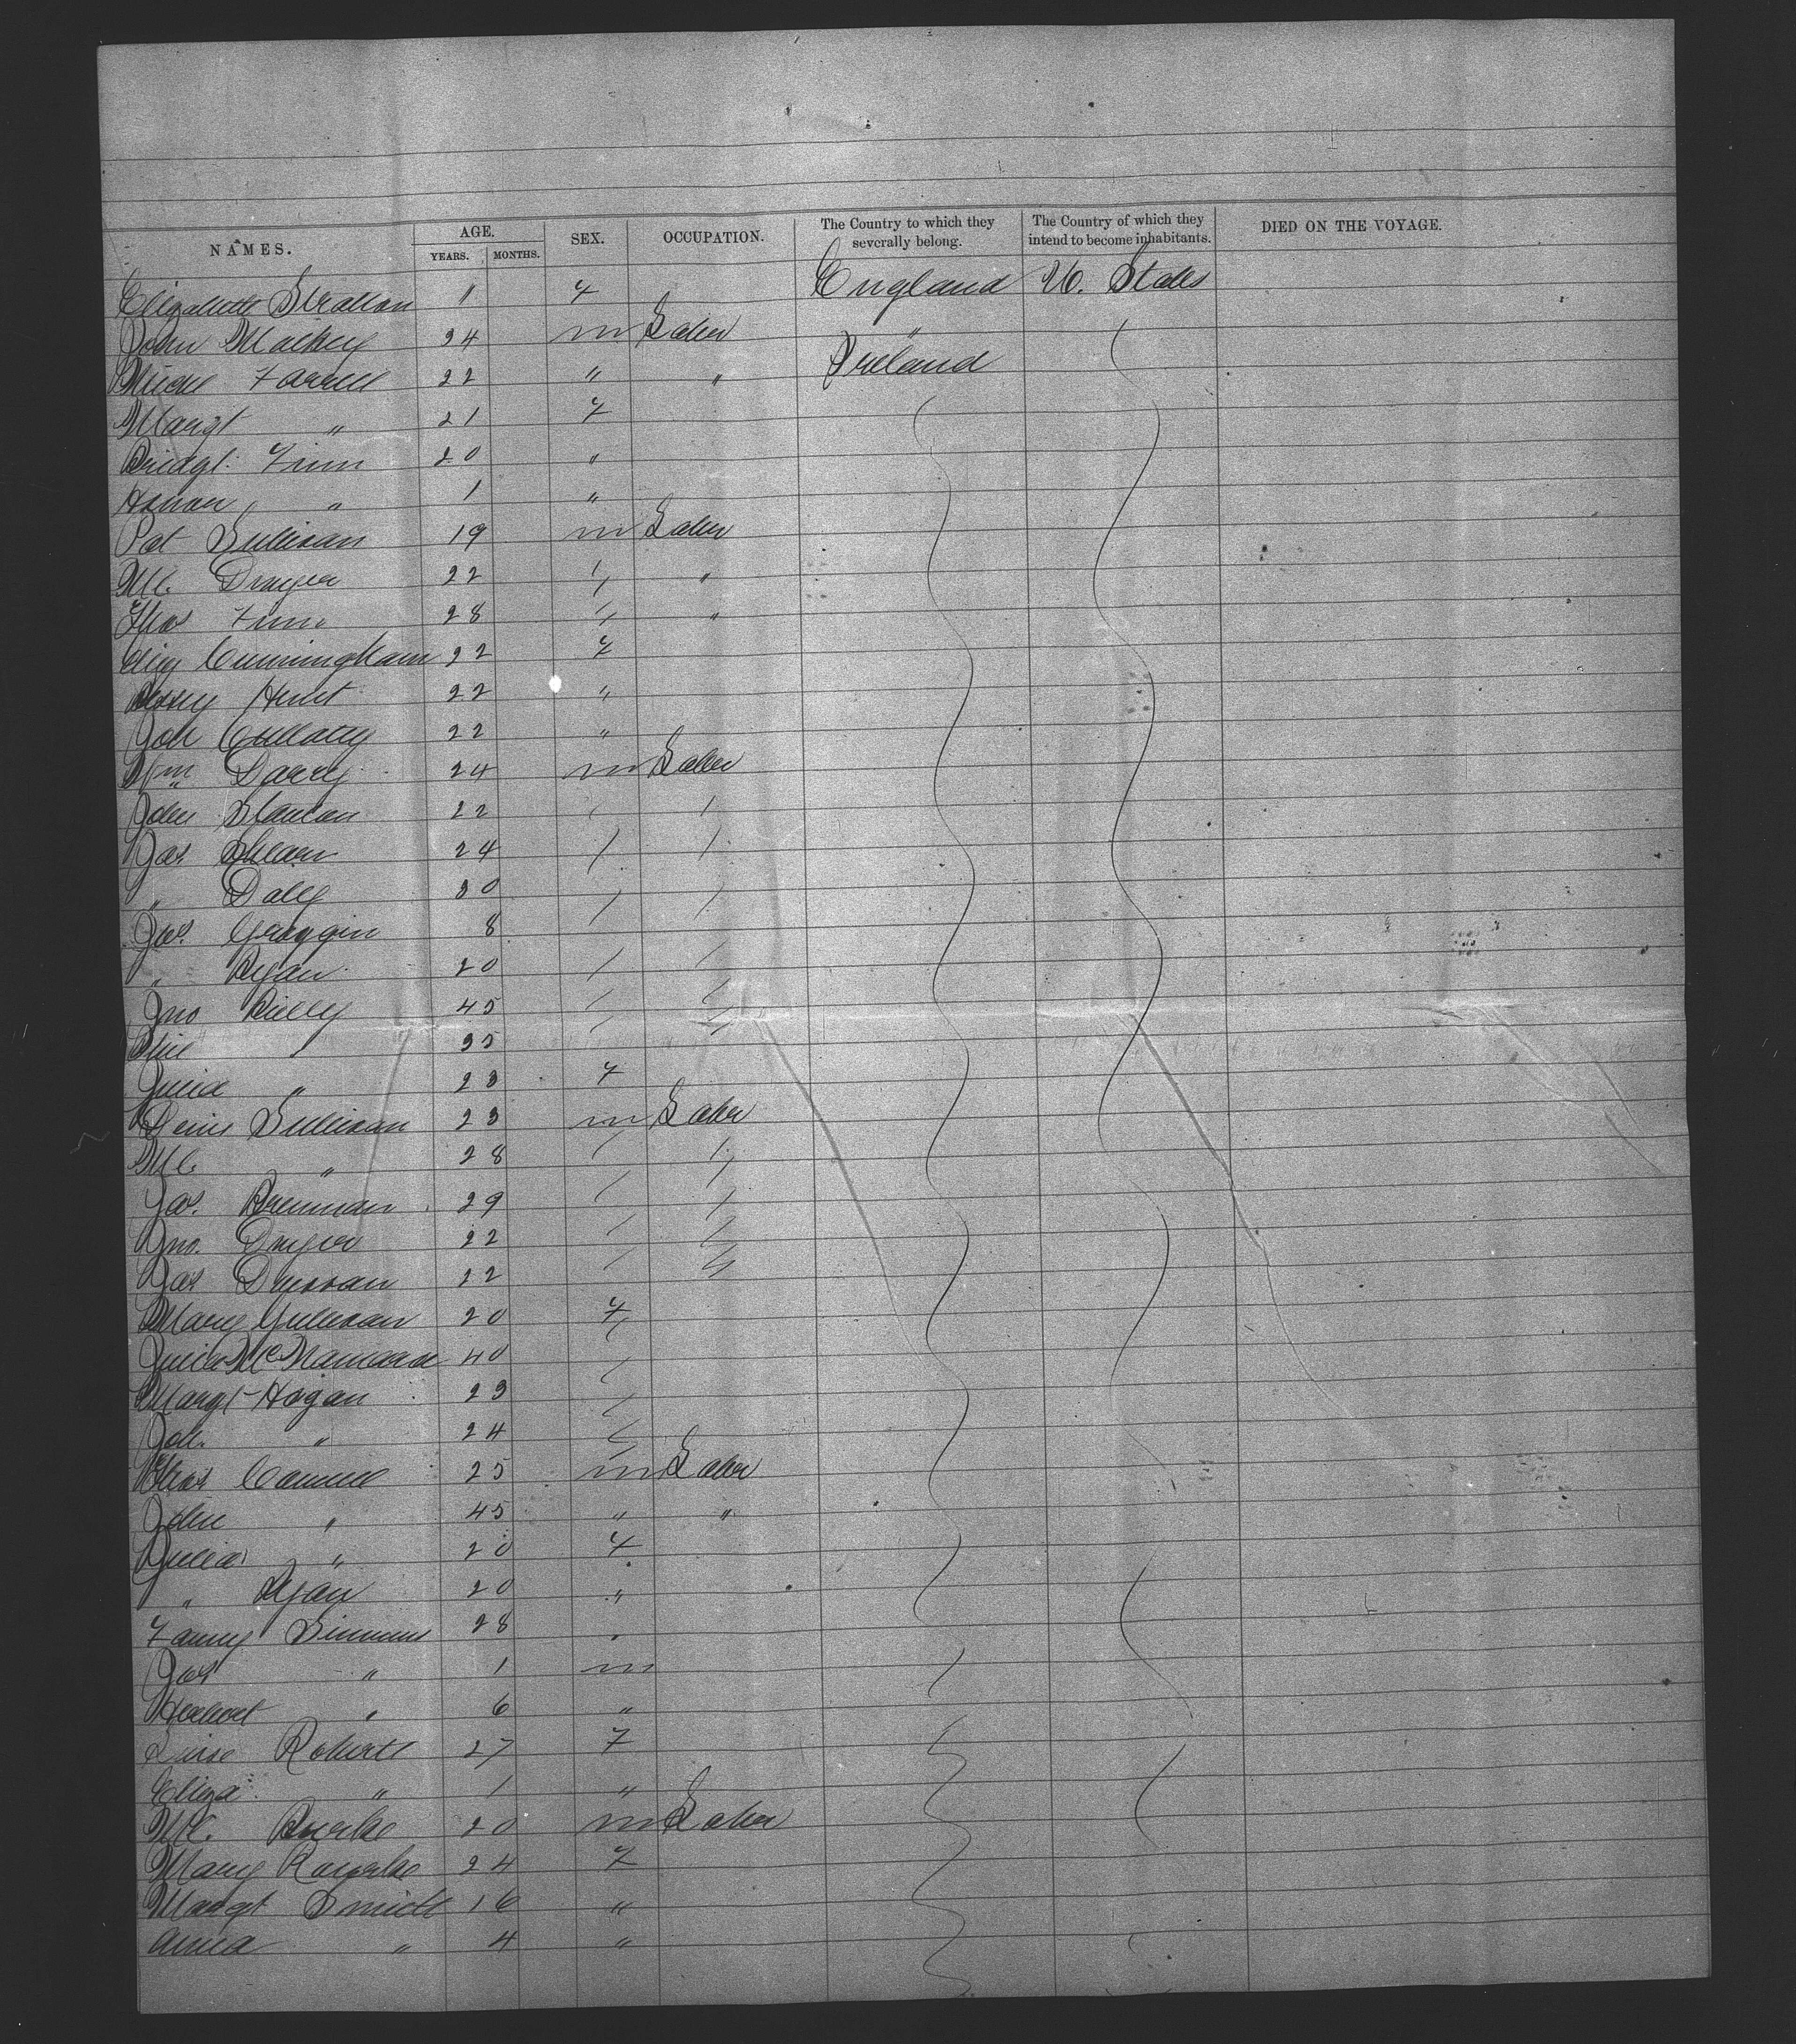 NAMES. AGE. SEX. OCCUPATION. The Country to which they severally belong. The Country of which they intend to become inhabitants. DIED ON THE VOYAGE.
YEARS. MONTHS.
Elizabeth Stratton 1 F England U. States
John Mackey 34 m Labor "
Michl Farrell 22 " " Ireland
Margt " 21 F
Bridgt: Finn 20 "
Honor " 1 "
Pat Sullivan 19 m Labor
Ml. Dwyer 22 " "
Thos Finn 28 " "
Cunningham 22 F
Hunt 22 "
Joh 22 "
Wm 24 m Labor
John 22
Jas 24
" Daly 30
Jas. 8
" Ryan 20
Jno 45
35
Julia " 23 F
Denis Sullivan 23 m Labor
Ml. " 28
Jas. Brennan 29
Jno. Dwyer 22
Jas 22
Mary 20 F
Julia McNamara 40
Margt Hogan 23
Joh. " 24
Thos 25 m Labor
John " 45 " "
Julia " 20 F
" Ryan 20 "
Fanny 28 "
Jas " 1 m
Herbert " 6 "
Robert 27 F
Eliza " 1 "
Ml. Burke 20 m Labor
Mary 24 F
Margt Smith 16 "
Anna " 4 "